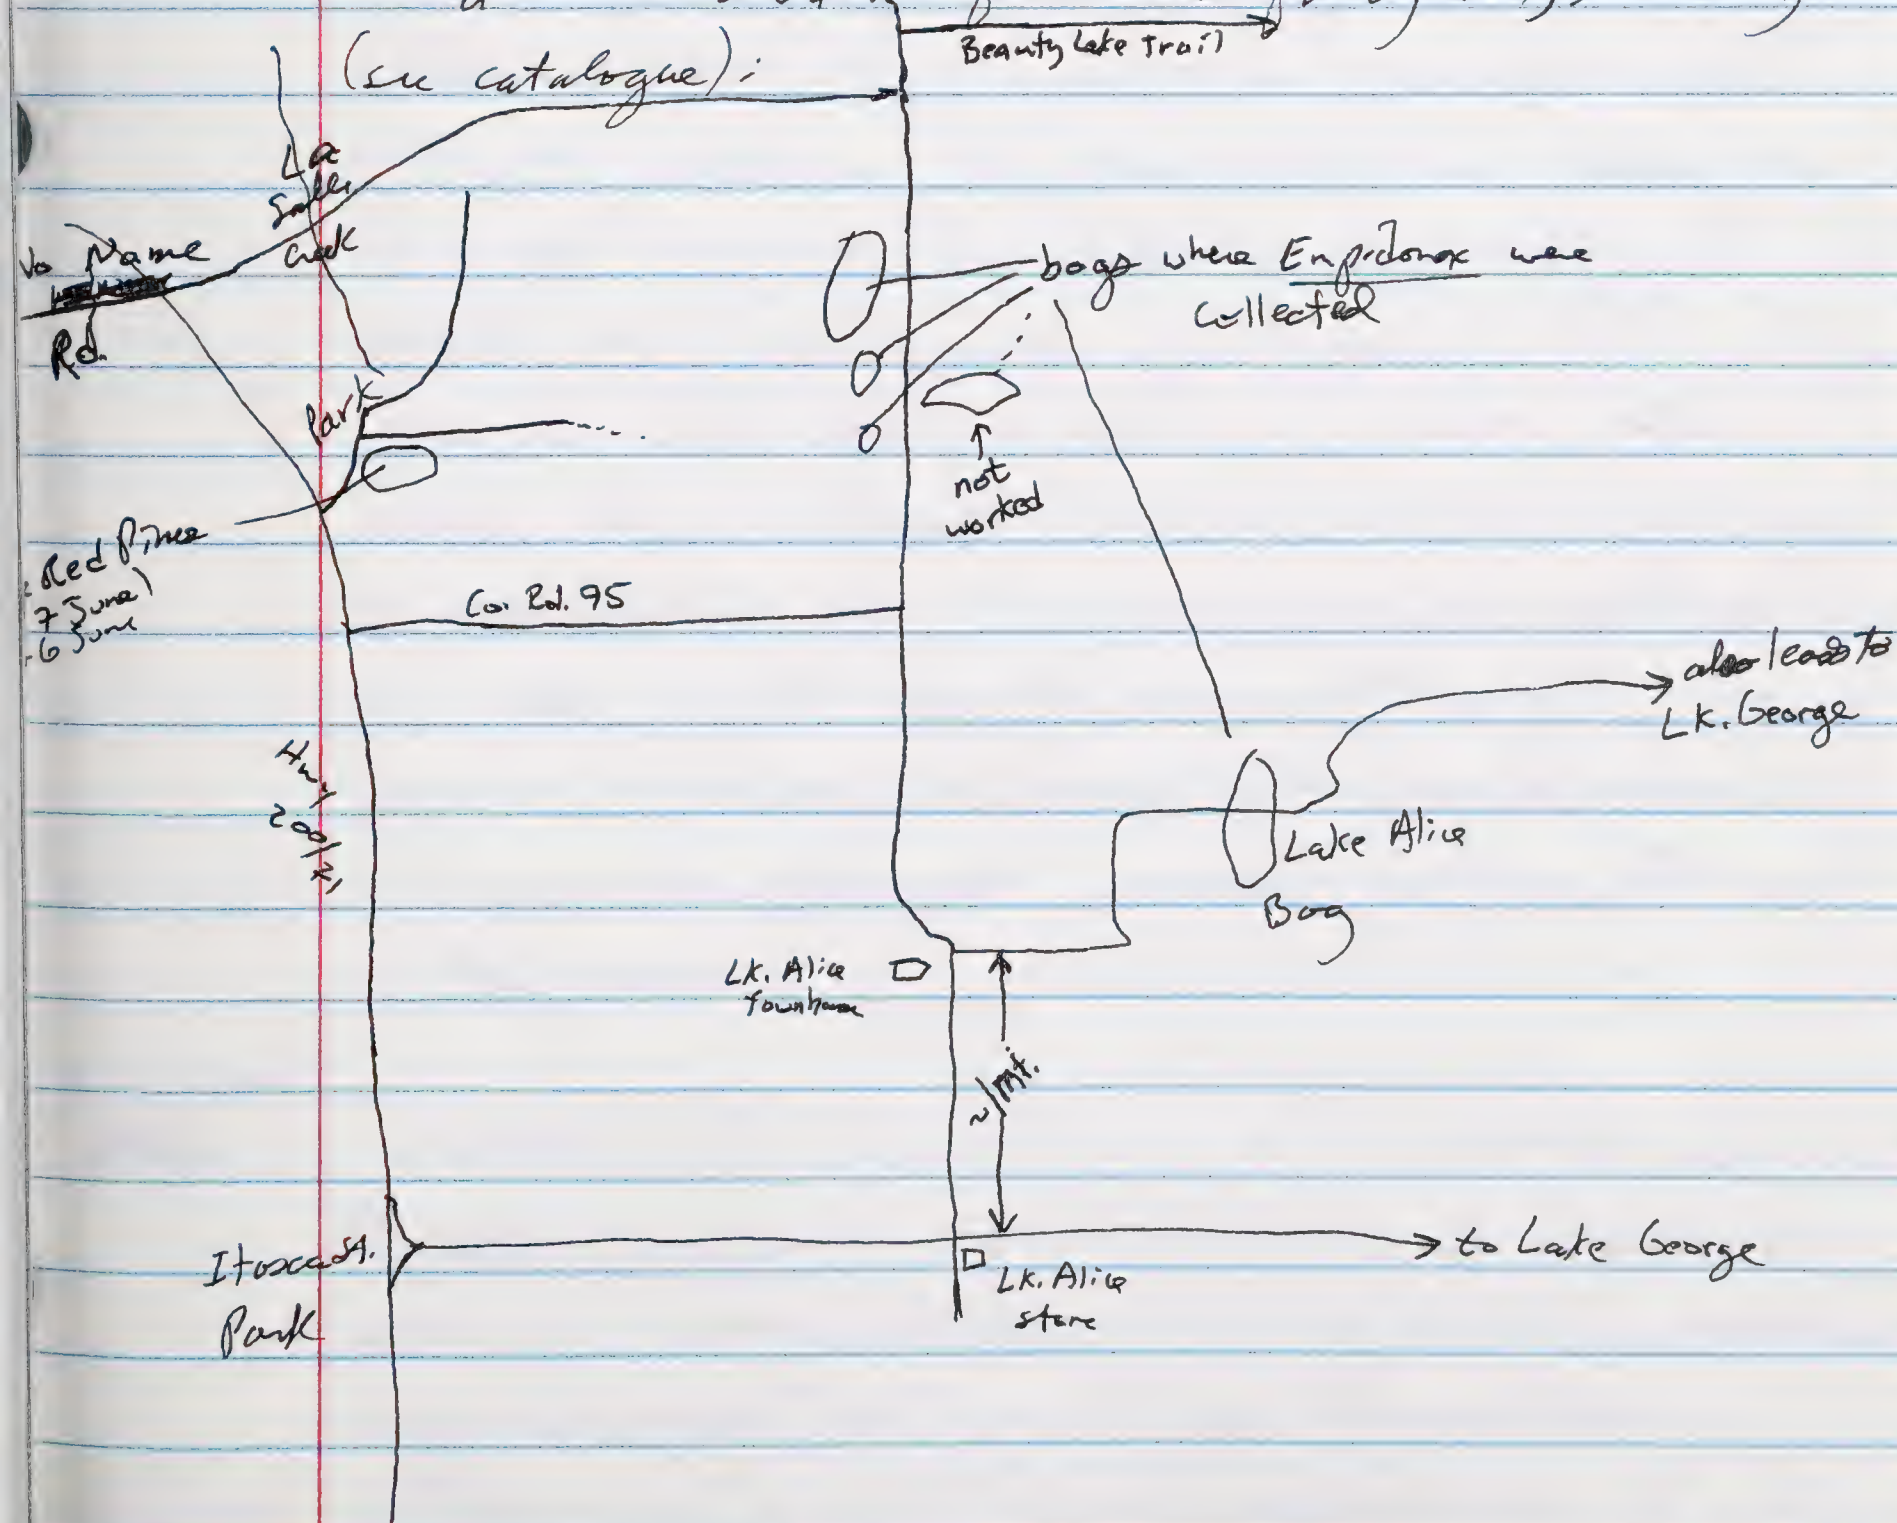 Beauty Lake Trail
(see catalogue):
La
Salle
Creek
No Name
Rd.
bogs where Empidonax were
collected
Park
not
worked
Red Pine
7 June)
6 June
Co. Rd. 95
also leads to
Lk. George
Hwy
200/71
Lake Alice
Bog
Lk. Alice
Townhouse
~1 mi.
Itasca St.
Park
to Lake George
Lk. Alice
store